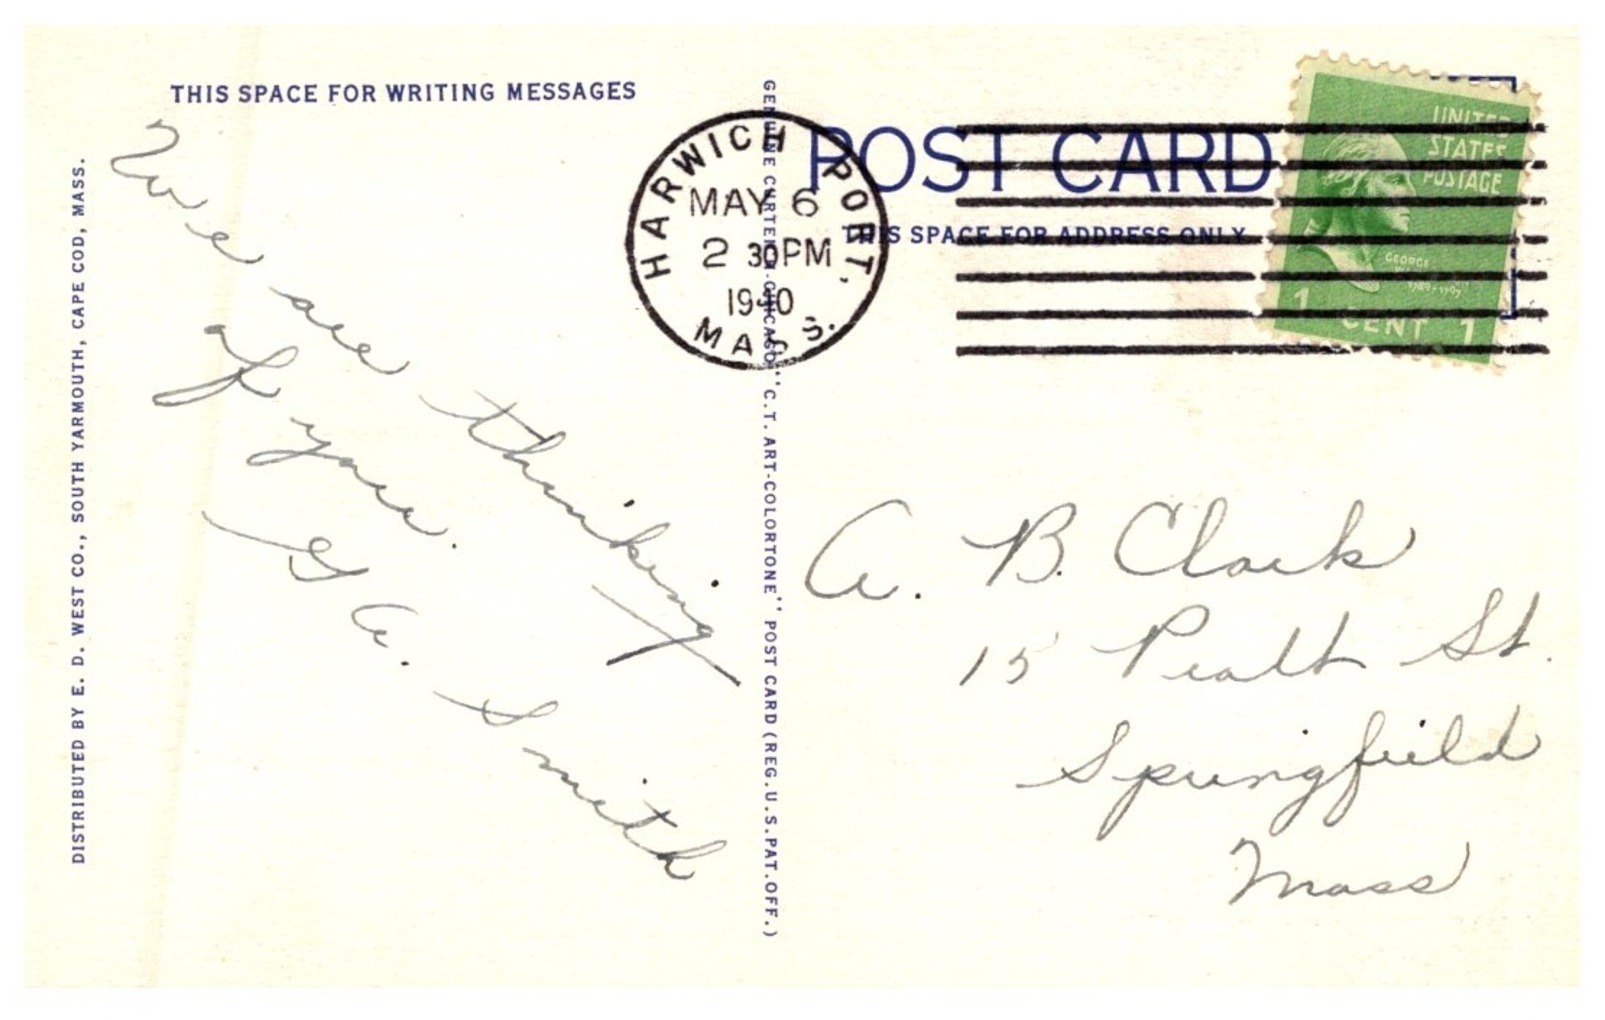 THIS SPACE FOR WRITING MESSAGES
We are thinking
of you.
G. A. Smith
DISTRIBUTED BY E. D. WEST CO., SOUTH YARMOUTH, CAPE COD, MASS.
GENUINE CURTEICH-CHICAGO "C.T. ART-COLORTONE" POST CARD (REG. U.S. PAT. OFF.)
HARWICH PORT,
MAY 6
2 30PM
1940
MASS.
POST CARD
THIS SPACE FOR ADDRESS ONLY
UNITED
STATES
POSTAGE
GEORGE
1789-1797
1 CENT 1
A. B. Clark
15 St.
Springfield
Mass